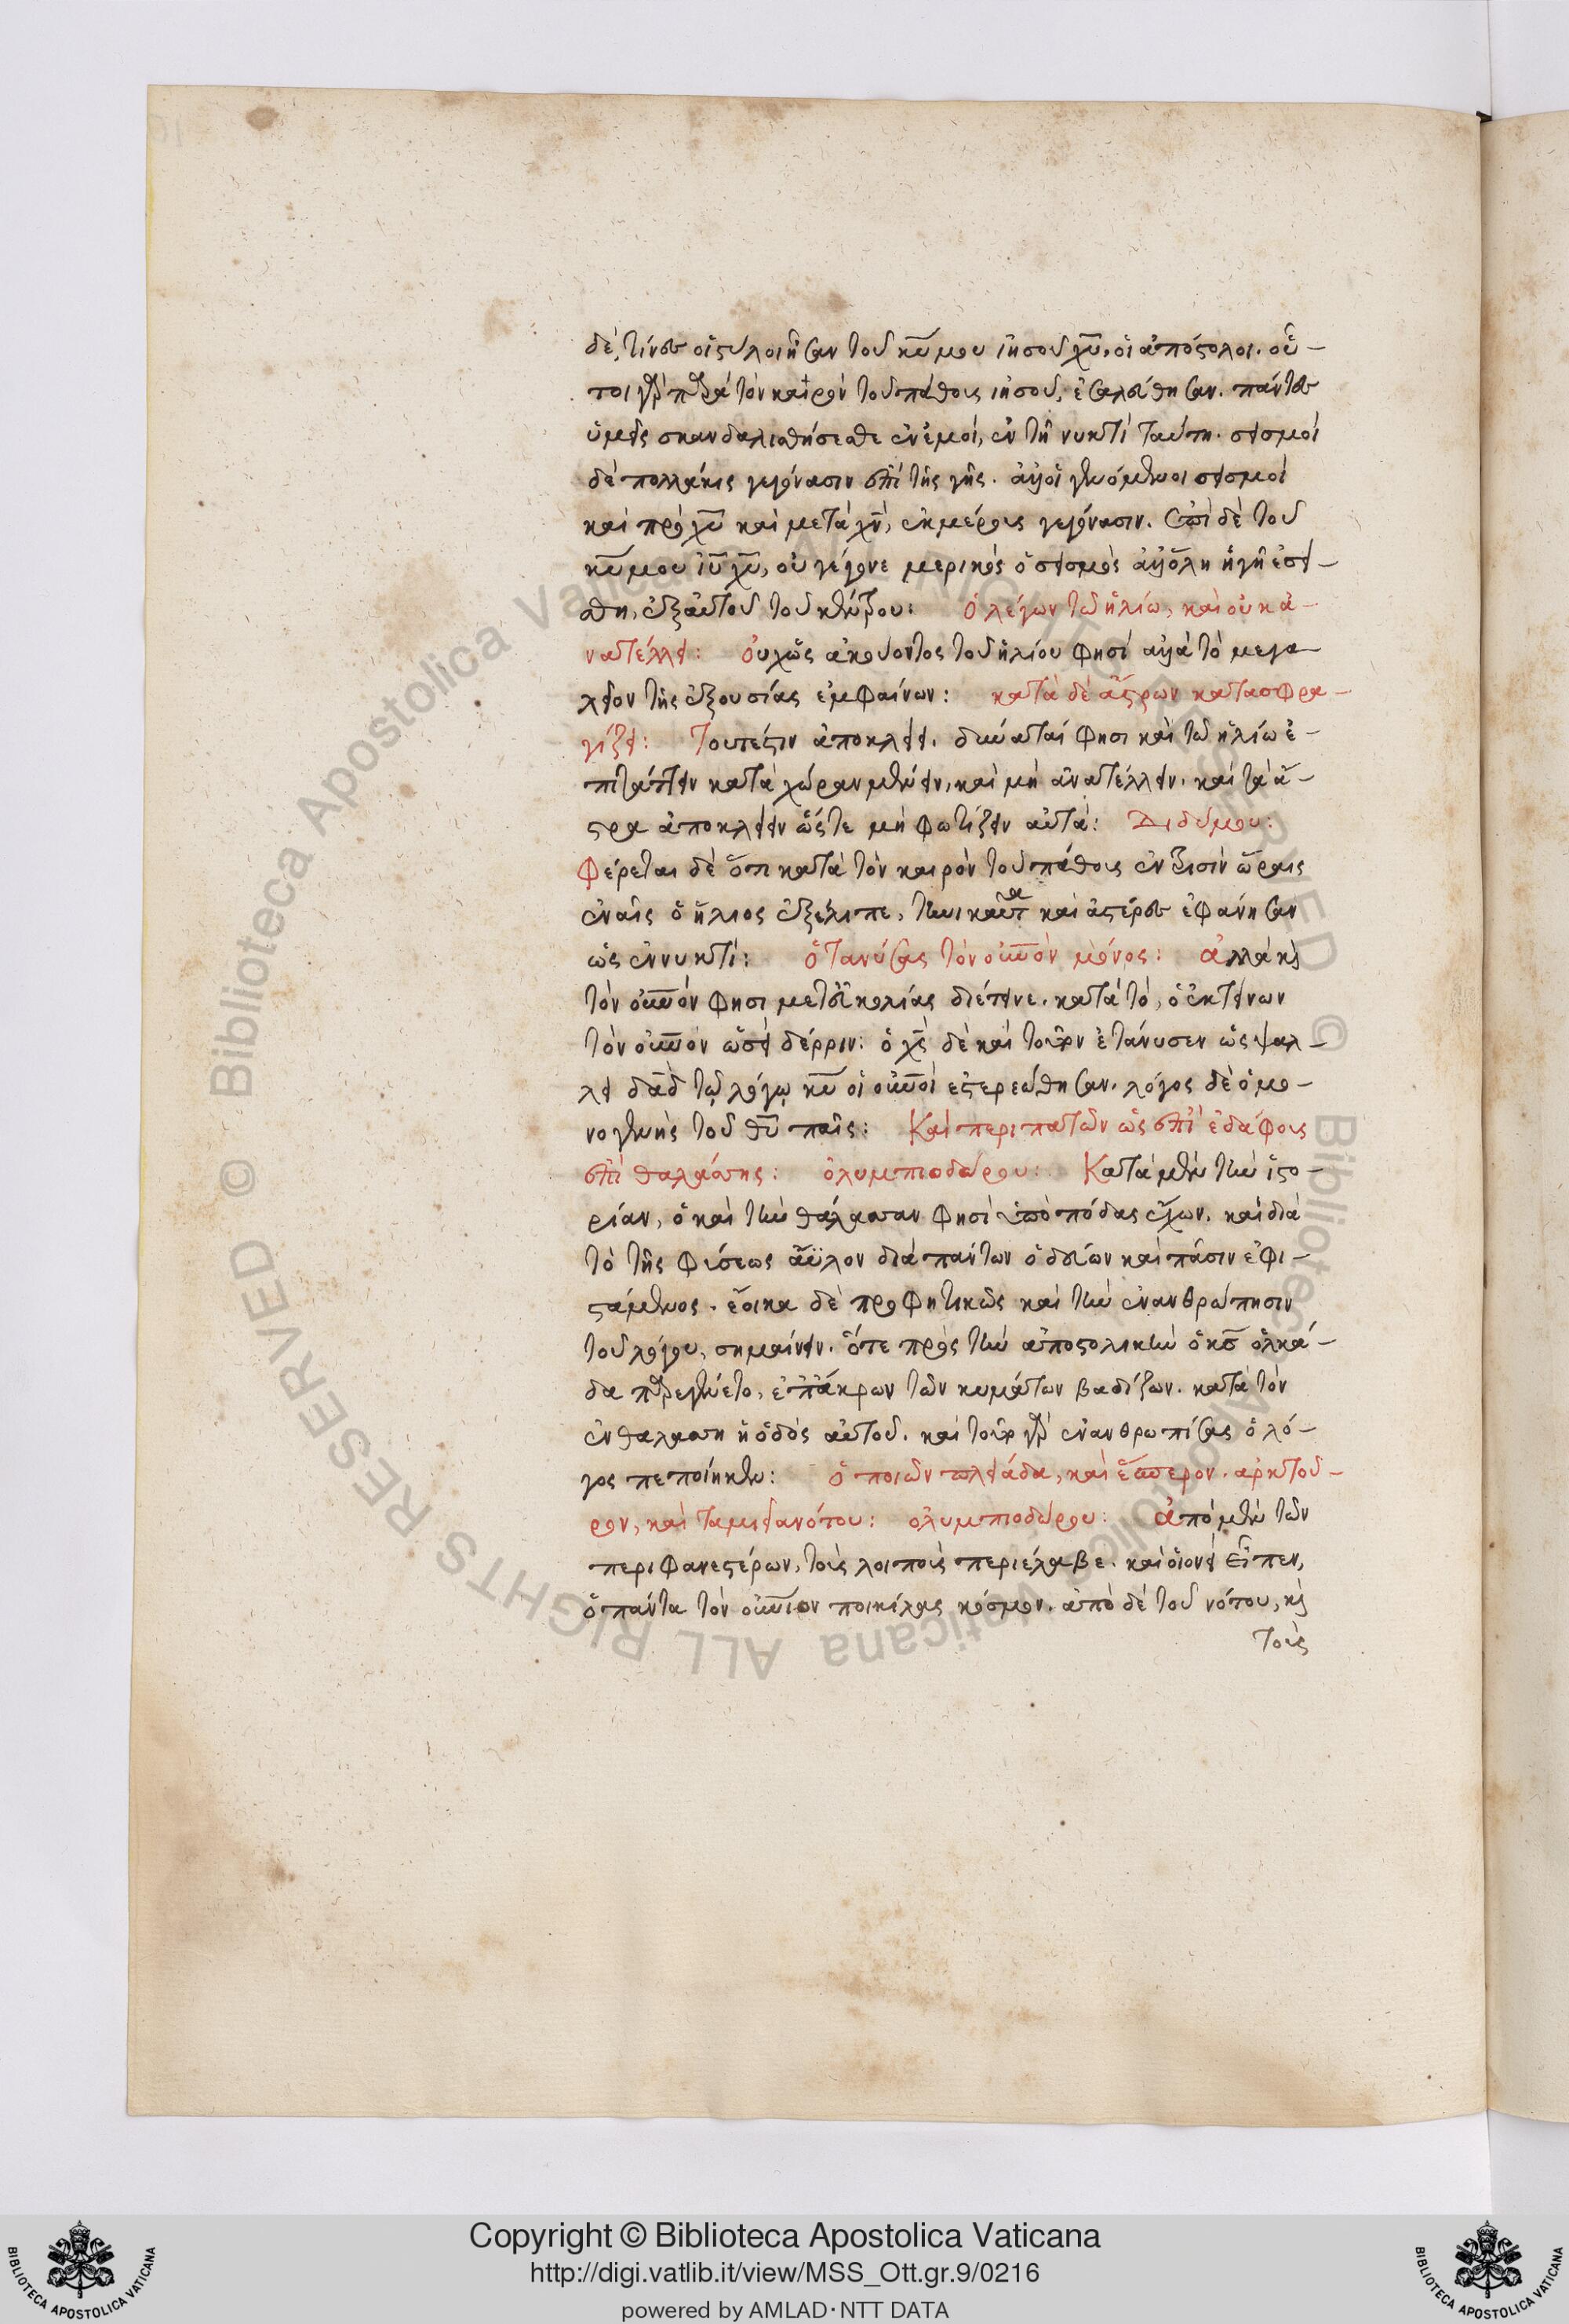 δέ, τίνες οἱ στύλοι ἦσαν τοῦ κυ̅ μου ἰησοῦ χυ̅, οἱ ἀπόστολοι. οὗ-
τοι γὰρ παρὰ τὸν καιρὸν τοῦ πάθους ἰησοῦ, ἐσαλεύθησαν. πάντες
ὑμεῖς σκανδαλισθήσεσθε ἐν ἐμοί, ἐν τῇ νυκτὶ ταύτη. σεισμοὶ
δὲ πολλάκις γεγόνασιν ἐπὶ τῆς γῆς. ἀλλ' οἱ γενόμενοι σεισμοὶ
καὶ πρὸ χυ̅ καὶ μετὰ χν̅, ἐκ μέρους γεγόνασιν. ἐπὶ δὲ τοῦ
κυ̅ μου ἰυ̅ χυ̅, οὐ γέγονε μερικὸς ὁ σεισμὸς ἀλλ' ὅλη ἡ γῆ ἐσεί-
σθη, ἐξ αὐτοῦ τοῦ κέντρου: ὁ λέγων τῶ ἡλίω, καὶ οὐκ ἀ-
νατέλλει: οὐχ ὡς ἀκούοντος τοῦ ἡλίου φησί ἀλλὰ τὸ μεγα
λεῖον τῆς ἐξουσίας ἐμφαίνων: κατὰ δὲ ἄστρων κατασφρα-
γίζει: Τουτέστιν ἀποκλείει. δύναταί φησι καὶ τῶ ἡλίω ἐ-
πιτάττειν κατὰ χώραν μένειν, καὶ μὴ ἀνατέλλειν. καὶ τὰ ἄ-
στρα ἀποκλείειν ὥστε μὴ φωτίζειν αὐτά: Διδύμου:
Φέρεται δὲ ὅτι κατὰ τὸν καιρὸν τοῦ πάθους ἐν τρισὶν ὥραις
ἐν αἷς ὁ ἥλιος ἐξέλιπε, καὶ ἀστέρες ἐφάνησαν
ὡς ἐν νυκτί: ὁ τανύσας τὸν οὐνον μόνος: ἀλλὰ καὶ
τὸν οὐνόν φησι μετ' εὐκολίας διέτεινε. κατὰ τό, ὁ ἐκτείνων
τὸν οὐνον ὡσεὶ δέρριν: ὁ χς̅ δὲ καὶ τοῦτον ἐτάνυσεν ὡς ψαλ-
λει δαδ τῷ λόγῳ κυ̅ οἱ οὐνοι ἐστερεώθησαν. λόγος δὲ ὁ μο-
νογενὴς τοῦ θυ̅ παῖς: Καὶ περιπατῶν ὡς ἐπὶ ἐδάφους
ἐπὶ θαλάσσης: ὀλυμπιοδώρου: Κατὰ μὲν τὴν ἱστο-
ρίαν, ὁ καὶ τὴν θάλασσαν φησὶ ὑπὸ πόδας ἔχων. καὶ διὰ
τὸ τῆς φύσεως ἄϋλον διὰ πάντων ὁδεύων καὶ πᾶσιν ἐφι-
στάμενος. ἔοικα δὲ προφητικῶς καὶ τὴν ἐνανθρώπησιν
τοῦ λόγου, σημαίνειν. ὅτε πρὸς τὴν ἀποστολικὴν ὁ κς̅ ὁλκά-
δα παρεγένετο, ἐπ' ἄκρων τῶν κυμάτων βαδίζων. κατὰ τὸν
ἐν θαλάσση ἡ ὁδὸς αὐτοῦ. καὶ τοῦτο γὰρ ἐνανθρωπίσας ὁ λό-
γος πεποίηκεν: ὁ ποιῶν πλειάδα, καὶ ἕσπερον. ἀρκτοῦ-
ρον, καὶ ταμεῖα νότου: ὀλυμπιοδώρου: ἀπὸ μὲν τῶν
περιφανεστέρων, τοὺς λοιποὺς περιέλαβε. καὶ οἱονεὶ εἶπεν,
ὁ πάντα τὸν οὐνιον ποικίλας κόσμον. ἀπὸ δὲ τοῦ νότου, καὶ
τοὺς
Copyright © Biblioteca Apostolica Vaticana
http://digi.vatlib.it/view/MSS_Ott.gr.9/0216
powered by AMLAD·NTT DATA